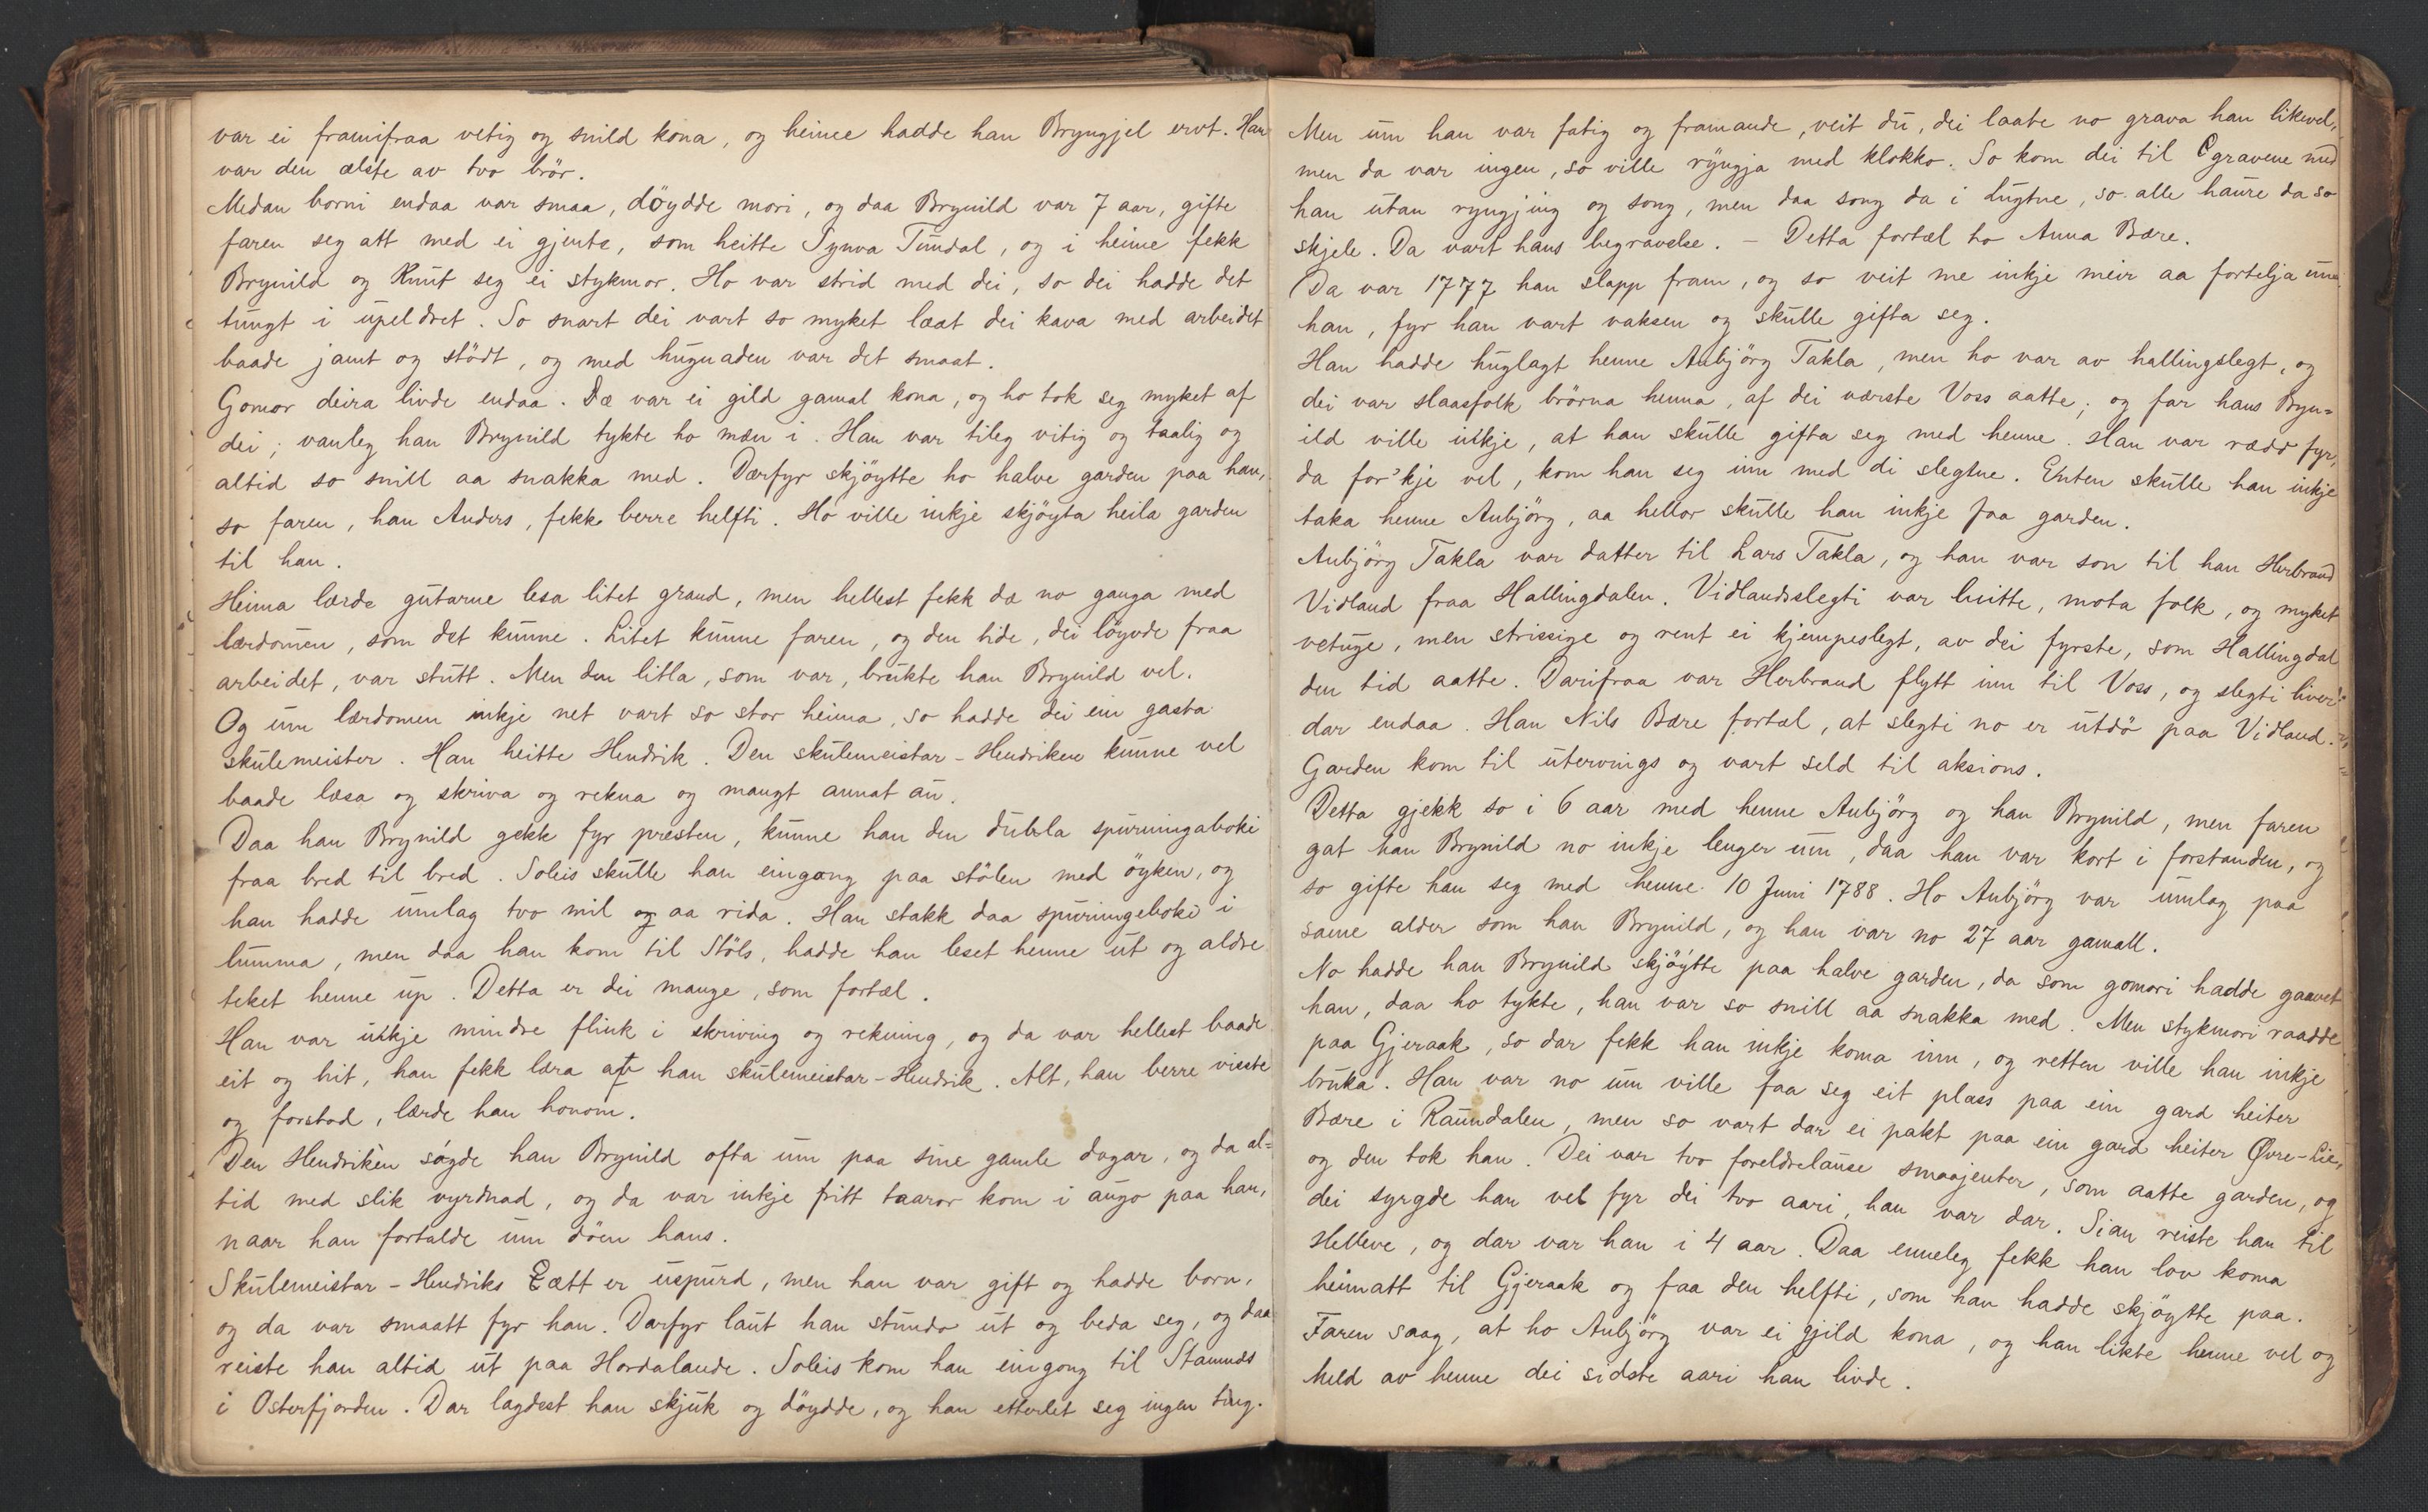 var ei framifraa vetig og snild kona, og heinee hadde han Bryngjel ervt. Han
var den ælste av tvo brör.
Medan borni endaa var smaa, döydde mori, og daa Brynild var 7 aar, gifte
faren seg att med ei gjente, som heitte Synva Tundal, og i heine fekk
Brynild og Knut seg ei stykmor. Ho var strid med dei, so dei hadde det
tungt i upeldret. So snart dei vart so myket læat dei kava med arbeidet
baade jamt og stödt, og med hugnaden var det smaat.
Gomor deira livde endaa. Dæ var ei gild gamal kona, og ho tok seg myket af
dei; vanleg han Brynild tykte ho mæn i. Han var tileg vitig og taalig og
altid so snill aa snakka med. Dærfyr skjöytte ho halve garden paa han,
so faren, han Anders, fekk berre helfti. Ho ville inkje skjöyta heila garden
til han.
Heima lærde gutarne lesa litet grand, men hellest fekk dæ no ganga med
lærdomen, som det kunne. Litet kunne faren, og den tide, dei löyvde fraa
arbeidet, var stutt. Men den litla, som var, brukte han Brynild vel.
Og um lærdomen inkje net vart so stor heima, so hadde dei ein gasta
skulemeister. Han heitte Hendrik. Den skulemeistar-Hendriken kunne vel
baade læsa og skriva og rekna og mangt annat au.
Daa han Brynild gekk fyr præsten, kunne han den dubla spurningaboki
fraa bred til bred. Soleis skulle han eingong paa stölen med öyken, og
han hadde umlag tvo mil og aa rida. Han stakk daa spurningeboki i
lumma, men daa han kom til Stöls, hadde han leset henne ut og aldre
teket henne up. Detta er dei mange, som fortæl.
Han var inkje mindre flink i skriving og rekning, og da var hellest baade
eit og hit, han fekk læra af han skulemeistar-Hendrik. Alt, han berre visste
og forstod, lærde han honom.
Den Hendriken sagde han Brynild ofta um paa sine gamle dagar, og da al-
tid med slik vyrdnad, og da var inkje fritt taaror kom i augo paa han,
naar han fortalde um döen hans.
Skulemeistar-Hendriks Ætt er uspurd, men han var gift og hadde born,
og da var smaatt fyr han. Darfyr laut han stundo ut og beda seg, og daa
reiste han altid ut paa Hordalande. Soleis kom han eingong til Stamnds
i Osterfjorden. Dar lagdest han skjuk og döydde, og han etterlet seg ingen ting.
Men um han var fatig og framande, veit du, dei laate no grava han likevel,
men da var ingen, so ville ryngja med klokko. So kom dei til gravene med
han utan ryngjing og song, men daa song da i lugtne, so alle haure da so
skjele. Da vart hans begravelse. – Detta fortæl ho Anna Bære.
Da var 1777 han slapp fram, og so veit me inkje meir aa fortelja um
han, fyr han vart vaksen og skulle gifta seg.
Han hadde huglagt henne Anbjörg Takla, men ho var av hallingslegt, og
dei var slaasfolk brörna henna, af dei værste Voss aatte; og far hans Bryn-
ild ville inkje, at han skulle gifta seg med henne. Han var rædd fyr,
da for'kje vel, kom han seg inn med di slegtne. Enten skulle han inkje
taka henne Anbjörg, aa hellor skulle han inkje faa garden.
Anbjörg Takla var datter til Lars Takla, og han var son til han Herbrand
Vidland fraa Hallingdalen. Vidlandsslegti var hvitte, mota folk, og myket
vetuge, men strissige og rent ei kjempeslegt, av dei fyrste, som Hallingdal
den tid aatte. Darifraa var Herbrand flytt inn til Voss, og slegti liver
dar endaa. Han Nils Bære fortæl, at slegti no er utdö paa Vidland.
Garden kom til utervings og vart seld til aksions.
Detta gjekk so i 6 aar med henne Anbjörg og han Brynild, men faren
gat han Brynild no inkje lenger um, daa han var kort i forstanden, og
so gifte han seg med henne 10 Juni 1788. Ho Anbjörg var umlag paa
same alder som han Brynild, og han var no 27 aar gamall.
No hadde han Brynild skjöytte paa halve garden, da som gomori hadde gaavet
han, daa ho tykte, han var so snill aa snakka med. Men stykmori raadde
paa Gjeraak, so dar fekk han inkje koma inn, og retten ville han inkje
bruka. Han var no um ville faa seg eit plass paa ein gard heiter
Bære i Raundalen, men so vart dar ei pakt paa ein gard heiter Øvre-Lie,
og den tok han. Dei var tvo foreldrelause smaajenter, som aatte garden, og
dei syrgde han vel fyr dei tvo aari, han var dar. Sian reiste han til
Helleve, og dar var han i 4 aar. Daa enneleg fekk han lov koma
heimatt til Gjeraak og faa den helfti, som han hadde skjöytte paa.
Faren saag, at ho Anbjörg var ei gjild kona, og han likte henne vel og
held av henne dei sidste aari han livde.